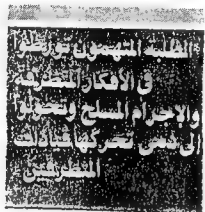 الطلبة المتهمون تورطوا
فى الأفكار المتطرفة
والاجرام المسلح وتحولوا
إلى دمى تحركها قيادات
المتطرفين